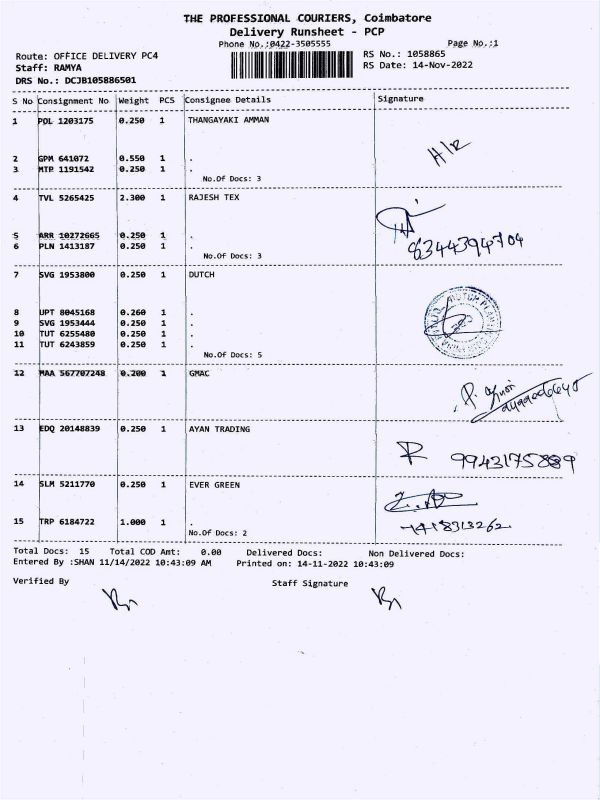 THE PROFESSIONAL COURIERS, Coimbatore
Delivery Runsheet - PCP
Phone No.:0422-3505555 Page No.:1
Route: OFFICE DELIVERY PC4 RS No.: 1058865
Staff: RAMYA RS Date: 14-Nov-2022
DRS No.: DCJB105886501
S No Consignment No Weight PCS Consignee Details Signature
1 POL 1203175 0.250 1 THANGAYAKI AMMAN
2 GPM 641072 0.550 1 .
3 MTP 1191542 0.250 1 .
No.Of Docs: 3
4 TVL 5265425 2.300 1 RAJESH TEX
5 ARR 10272665 0.250 1 .
6 PLN 1413187 0.250 1 .
8344394704
No.Of Docs: 3
7 SVG 1953800 0.250 1 DUTCH
8 UPT 8045168 0.260 1 .
9 SVG 1953444 0.250 1 .
10 TUT 6255480 0.250 1 .
11 TUT 6243859 0.250 1 .
No.Of Docs: 5
12 MAA 567707248 0.200 1 GMAC
13 EDQ 20148839 0.250 1 AYAN TRADING
9943175889
14 SLM 5211770 0.250 1 EVER GREEN
15 TRP 6184722 1.000 1 .
No.Of Docs: 2
Total Docs: 15 Total COD Amt: 0.00 Delivered Docs: Non Delivered Docs:
Entered By :SHAN 11/14/2022 10:43:09 AM Printed on: 14-11-2022 10:43:09
Verified By Staff Signature